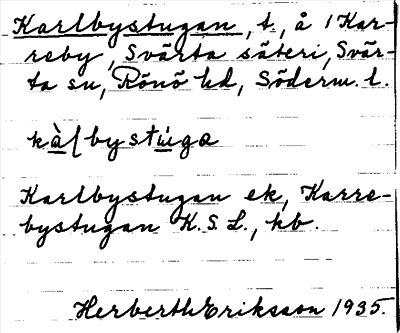 Karlbystugan, t., å 1 Kar-
reby, Svärta säteri, Svär-
ta sn, Rönö hd, Söderm. l.
kàɭbystúga
Karlbystugan ek, Karre-
bystugan K.S.L., kb.
Herberth Eriksson 1935.